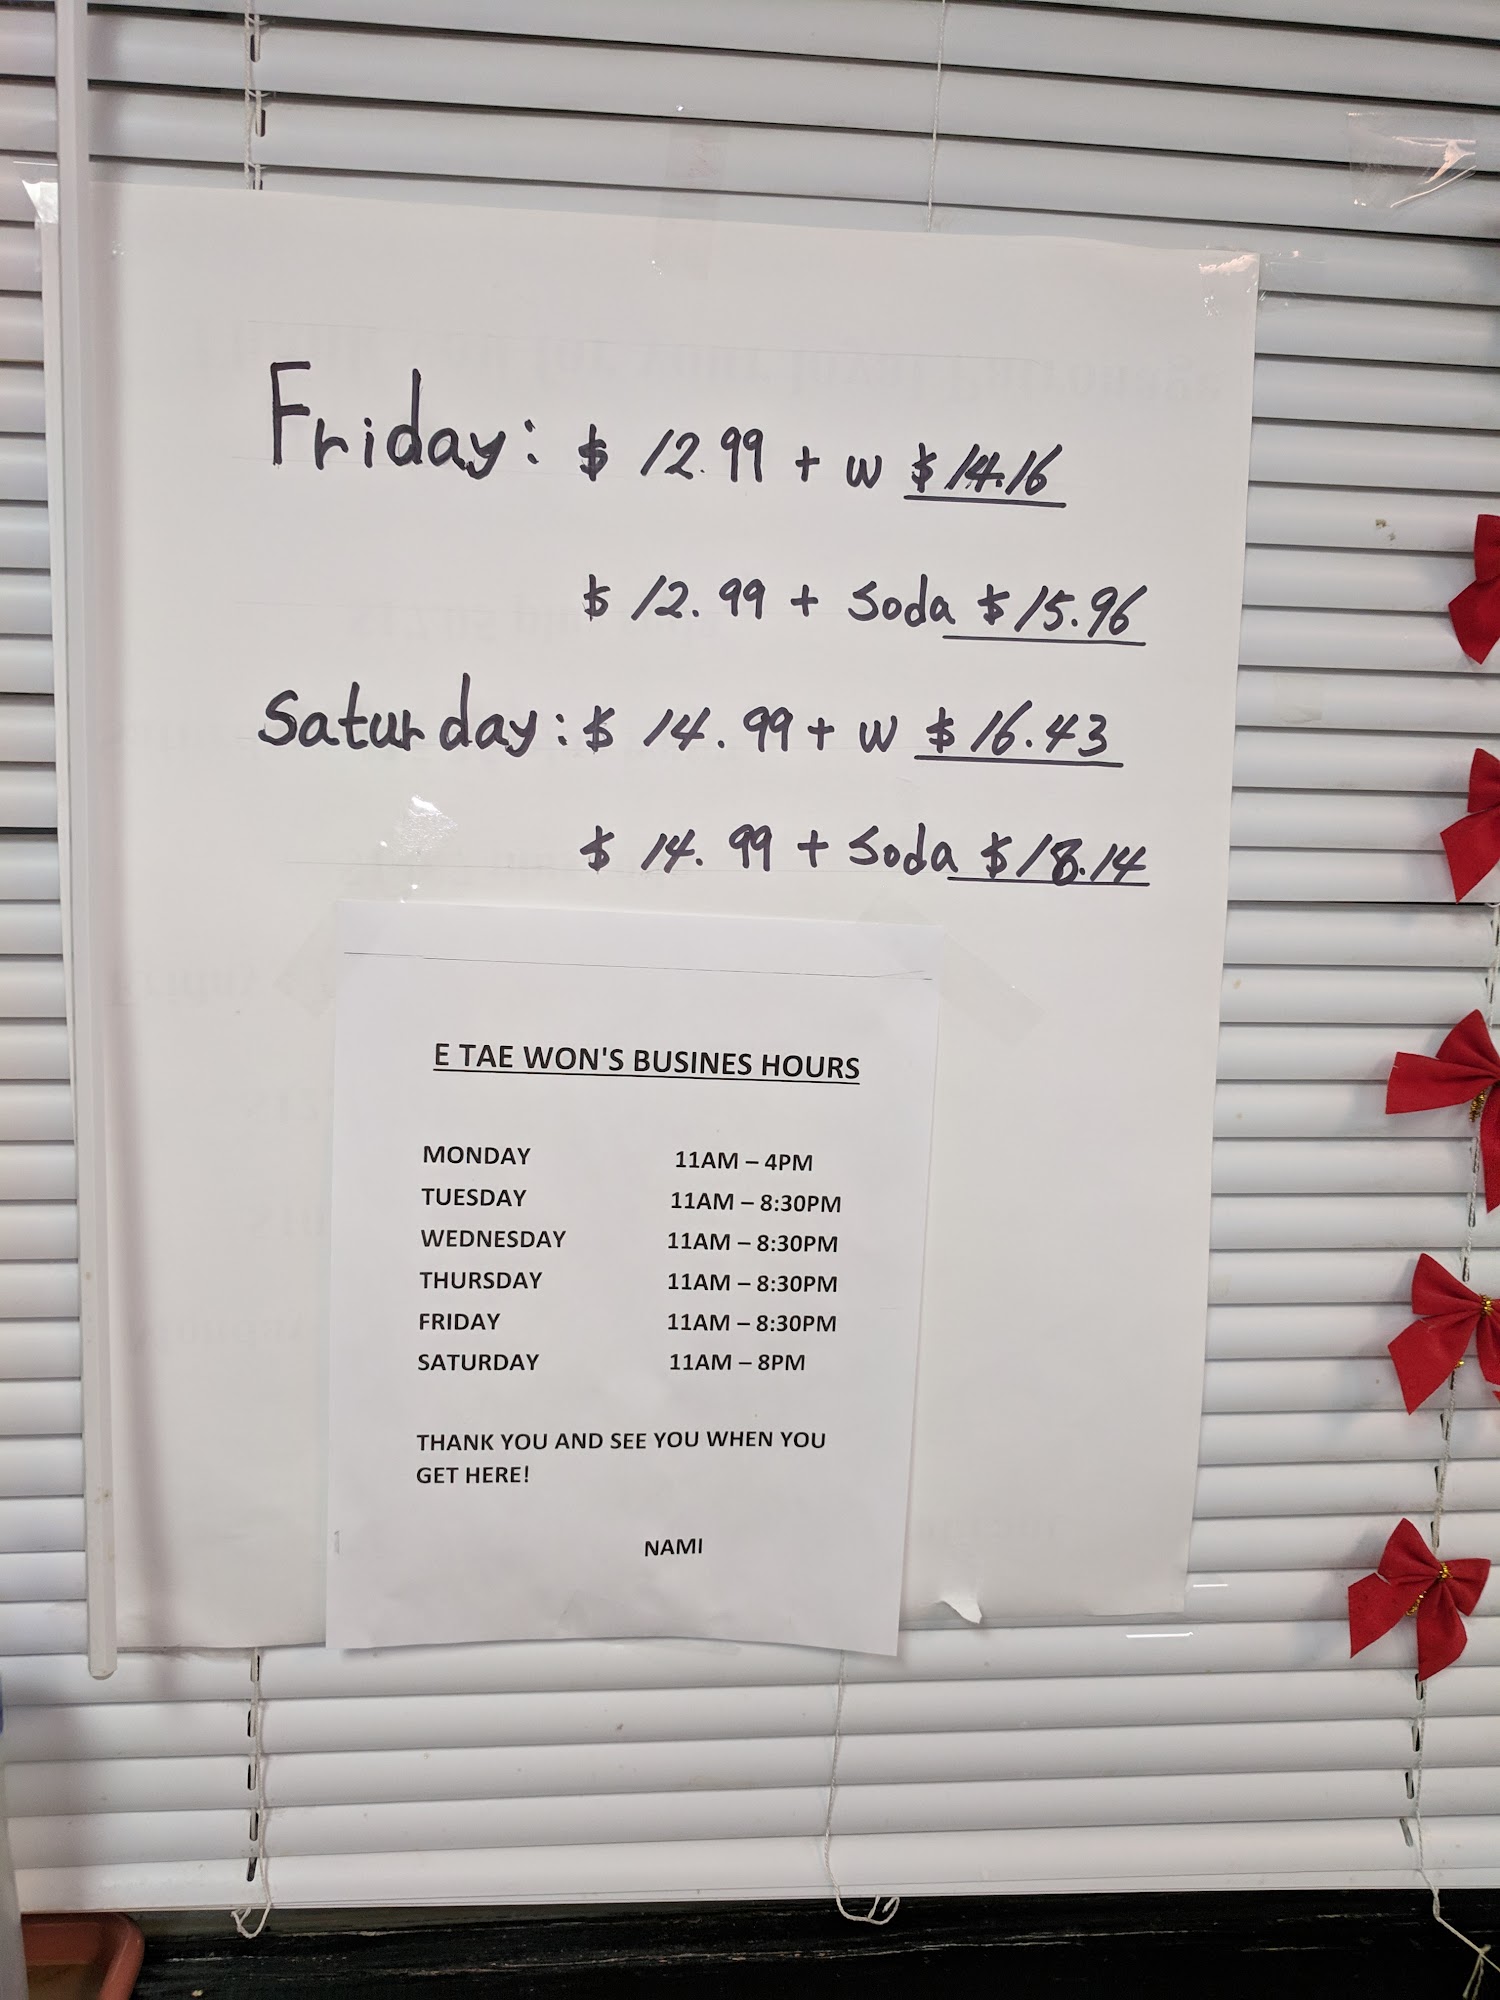 Friday: $ 12.99 + w $14.16
$ 12.99 + Soda $15.96
Saturday: $ 14.99 + w $16.43
$ 14.99 + Soda $18.14
E TAE WON'S BUSINES HOURS
MONDAY 11AM – 4PM
TUESDAY 11AM – 8:30PM
WEDNESDAY 11AM – 8:30PM
THURSDAY 11AM – 8:30PM
FRIDAY 11AM – 8:30PM
SATURDAY 11AM – 8PM
THANK YOU AND SEE YOU WHEN YOU
GET HERE!
NAMI